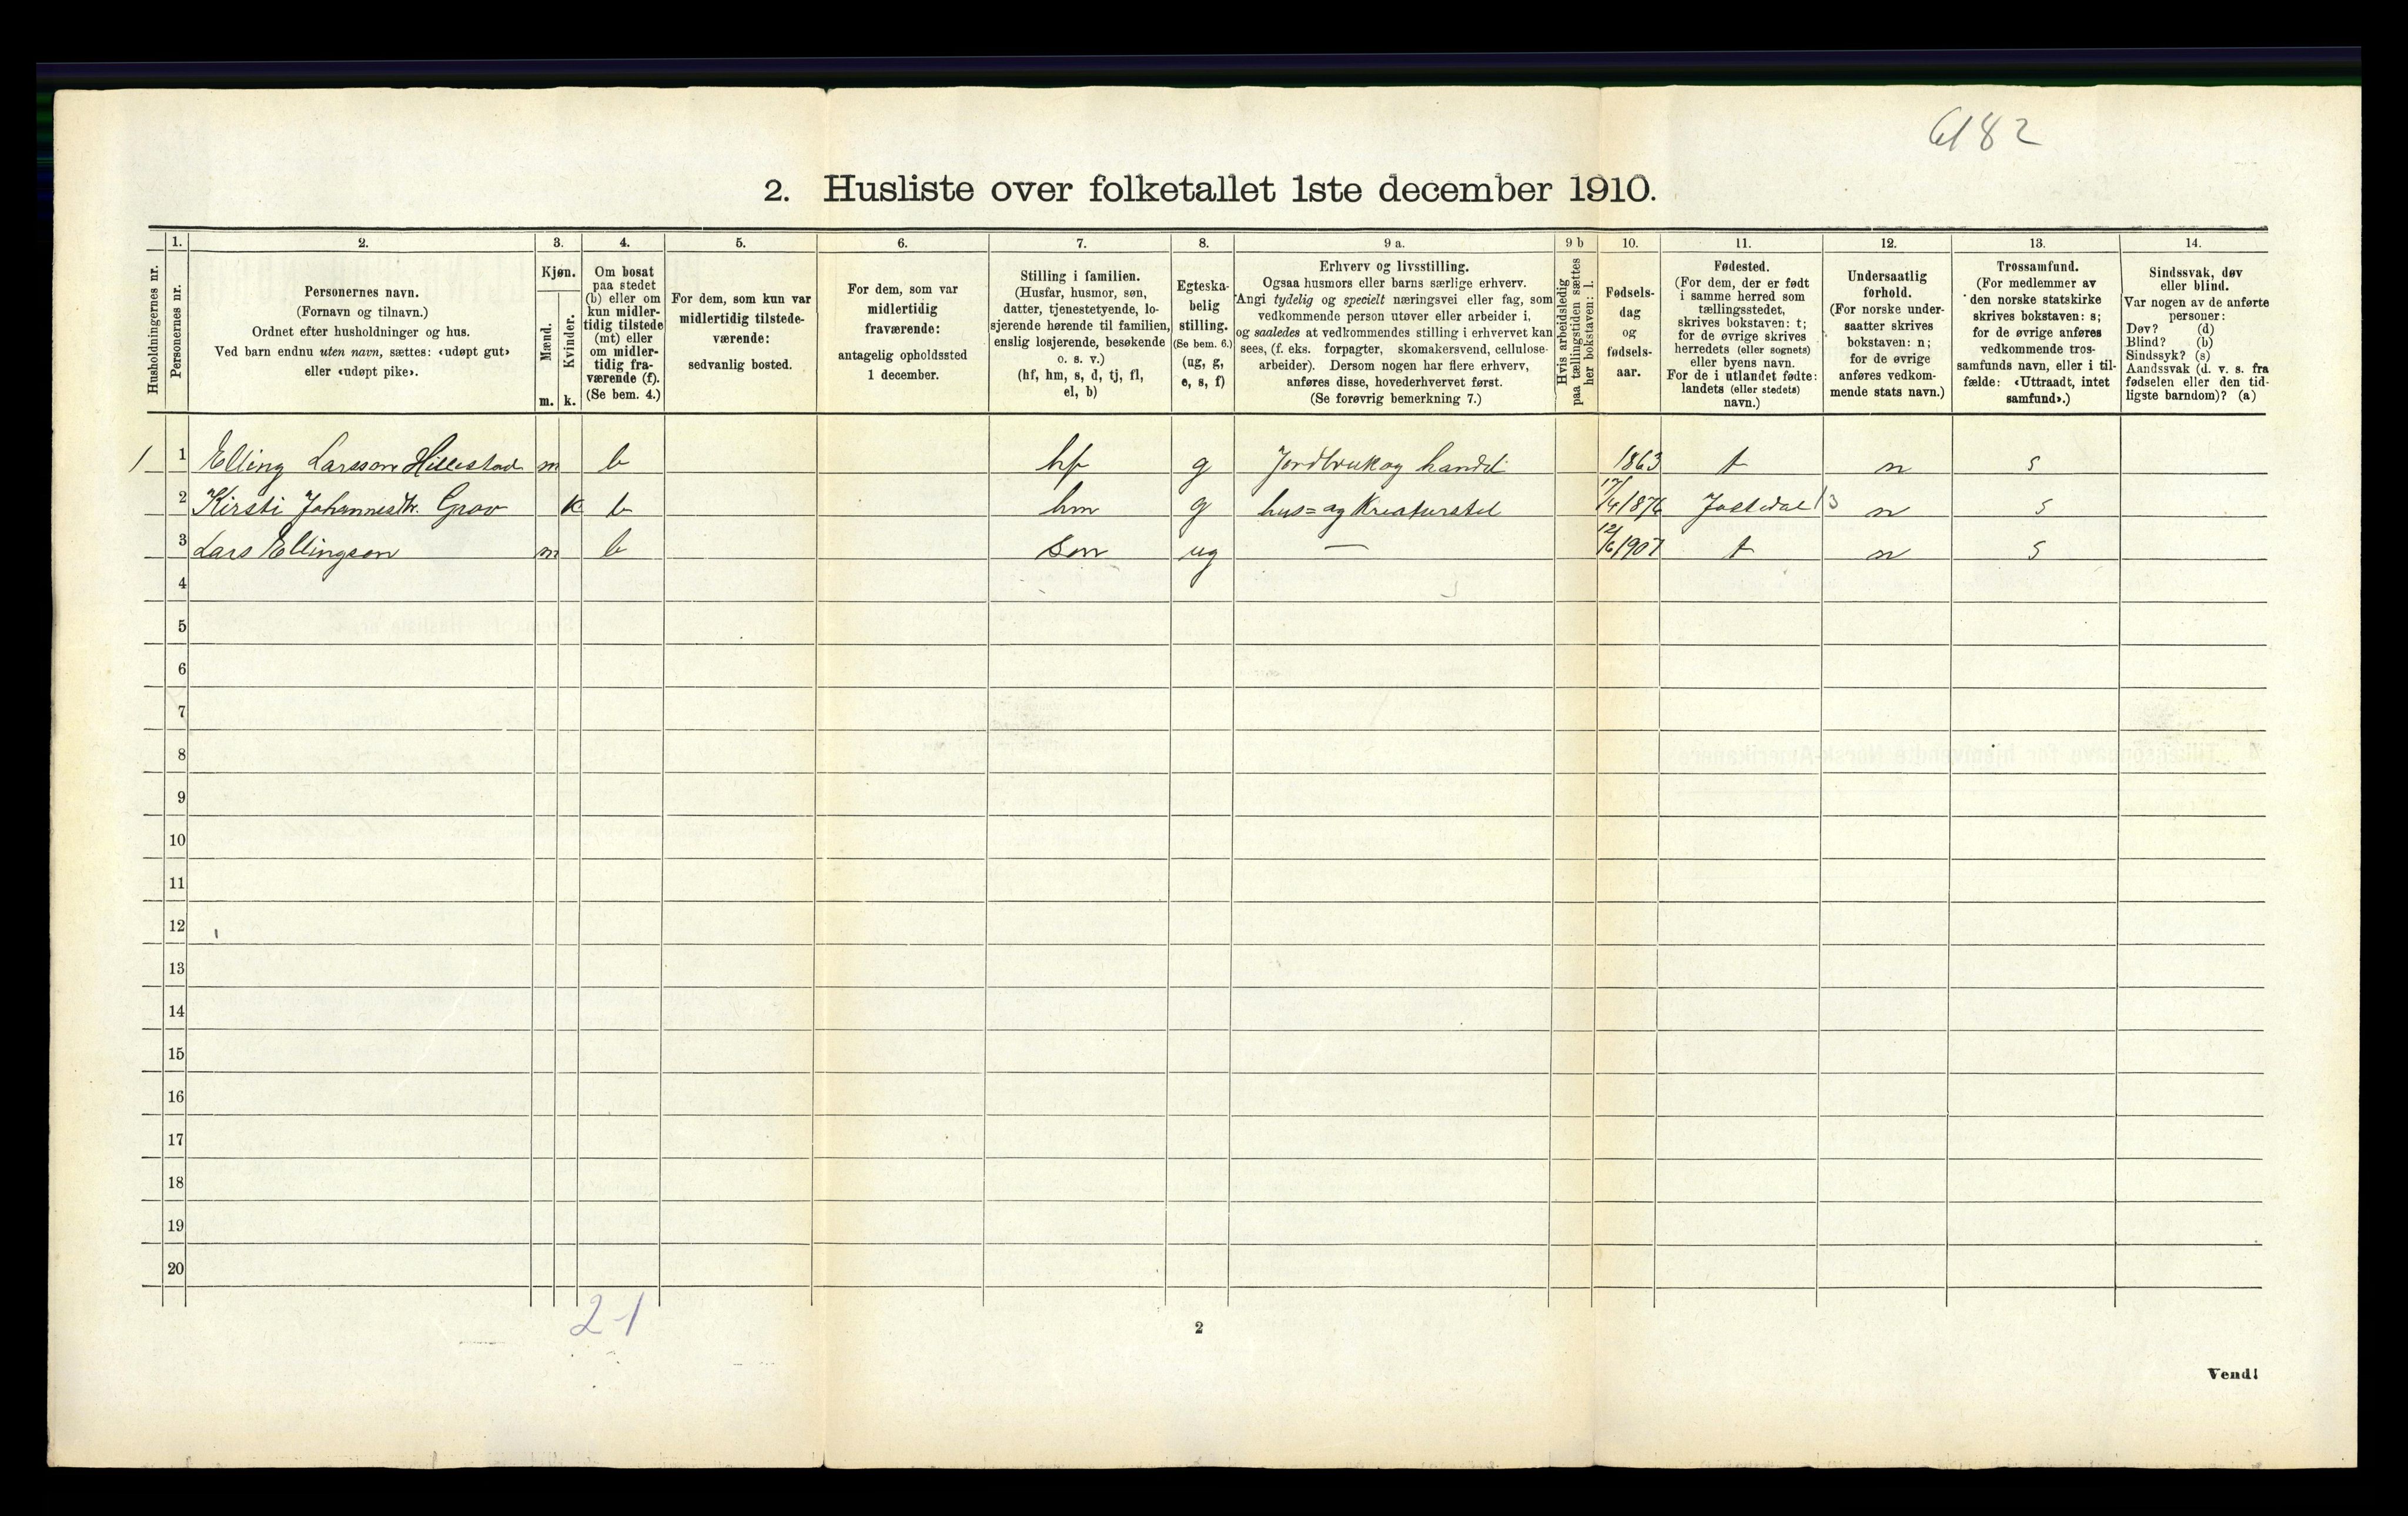 6182
2. Husliste over folketallet 1ste december 1910.
Husholdningernes nr.
1.
Personernes nr.
2.
Personernes navn.
(Fornavn og tilnavn.)
Ordnet efter husholdninger og hus.
Ved barn endnu uten navn, sættes: «udøpt gut»
eller «udøpt pike».
3.
Kjøn.
Mænd.
Kvinder.
m. k.
4.
Om bosat
paa stedet
(b) eller om
kun midler-
tidig tilstede
(mt) eller
om midler-
tidig fra-
værende (f).
(Se bem. 4.)
5.
For dem, som kun var
midlertidig tilstede-
værende:
sedvanlig bosted.
6.
For dem, som var
midlertidig
fraværende:
antagelig opholdssted
1 december.
7.
Stilling i familien.
(Husfar, husmor, søn,
datter, tjenestetyende, lo-
sjerende hørende til familien,
enslig losjerende, besøkende
o. s. v.)
(hf, hm, s, d, tj, fl,
el, b)
8.
Egteska-
belig
stilling.
(Se bem. 6.)
(ug, g,
e, s, f)
9 a.
Erhverv og livsstilling.
Ogsaa husmors eller barns særlige erhverv.
Angi tydelig og specielt næringsvei eller fag, som
vedkommende person utøver eller arbeider i,
og saaledes at vedkommendes stilling i erhvervet kan
sees, (f. eks. forpagter, skomakersvend, cellulose-
arbeider). Dersom nogen har flere erhverv,
anføres disse, hovederhvervet først.
(Se forøvrig bemerkning 7.)
9 b
Hvis arbeidsledig
paa tællingstiden sættes
her bokstaven: l.
10.
Fødsels-
dag
og
fødsels-
aar.
11.
Fødested.
(For dem, der er født
i samme herred som
tællingsstedet,
skrives bokstaven: t;
for de øvrige skrives
herredets (eller sognets)
eller byens navn.
For de i utlandet fødte:
landets (eller stedets)
navn.)
12.
Undersaatlig
forhold.
(For norske under-
saatter skrives
bokstaven: n;
for de øvrige
anføres vedkom-
mende stats navn.)
13.
Trossamfund.
(For medlemmer av
den norske statskirke
skrives bokstaven: s;
for de øvrige anføres
vedkommende tros-
samfunds navn, eller i til-
fælde: «Uttraadt, intet
samfund».)
14.
Sindssvak, døv
eller blind.
Var nogen av de anførte
personer:
Døv? (d)
Blind? (b)
Sindssyk? (s)
Aandssvak (d. v. s. fra
fødselen eller den tid-
ligste barndom)? (a)
1 1 Elling Larsson Hillestad m b hf g Jordbruk og handel 1863 t n s
2 Kirsti Johannesdtr. Grov k b hm g hus= og kreaturstel 17/4 1876 Jostedal 13 n s
3 Lars Ellingson m b Son ug — 12/6 1907 t n s
4
5
6
7
8
9
10
11
12
13
14
15
16
17
18
19
20
2-1
2
Vend!